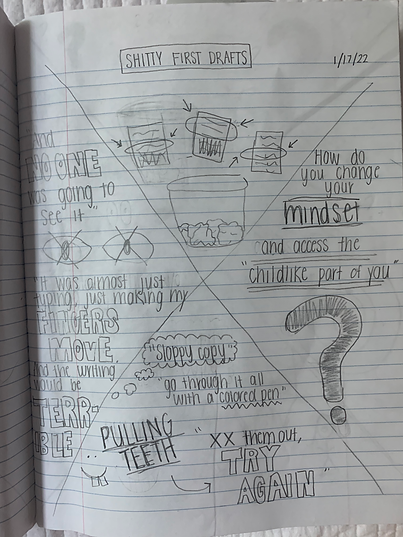 SHITTY FIRST DRAFTS
1/17/22
And
NO ONE
was going to
see it"
How do
you change
your
mindset
and access the
"childlike part of you"
"It was almost just
typing, just making my
FINGERS
MOVE.
And the writing
would be
TERR-
IBLE
"sloppy copy"
"go through it all
with a colored pen"
PULLING
TEETH
"XX them out,
TRY
AGAIN"